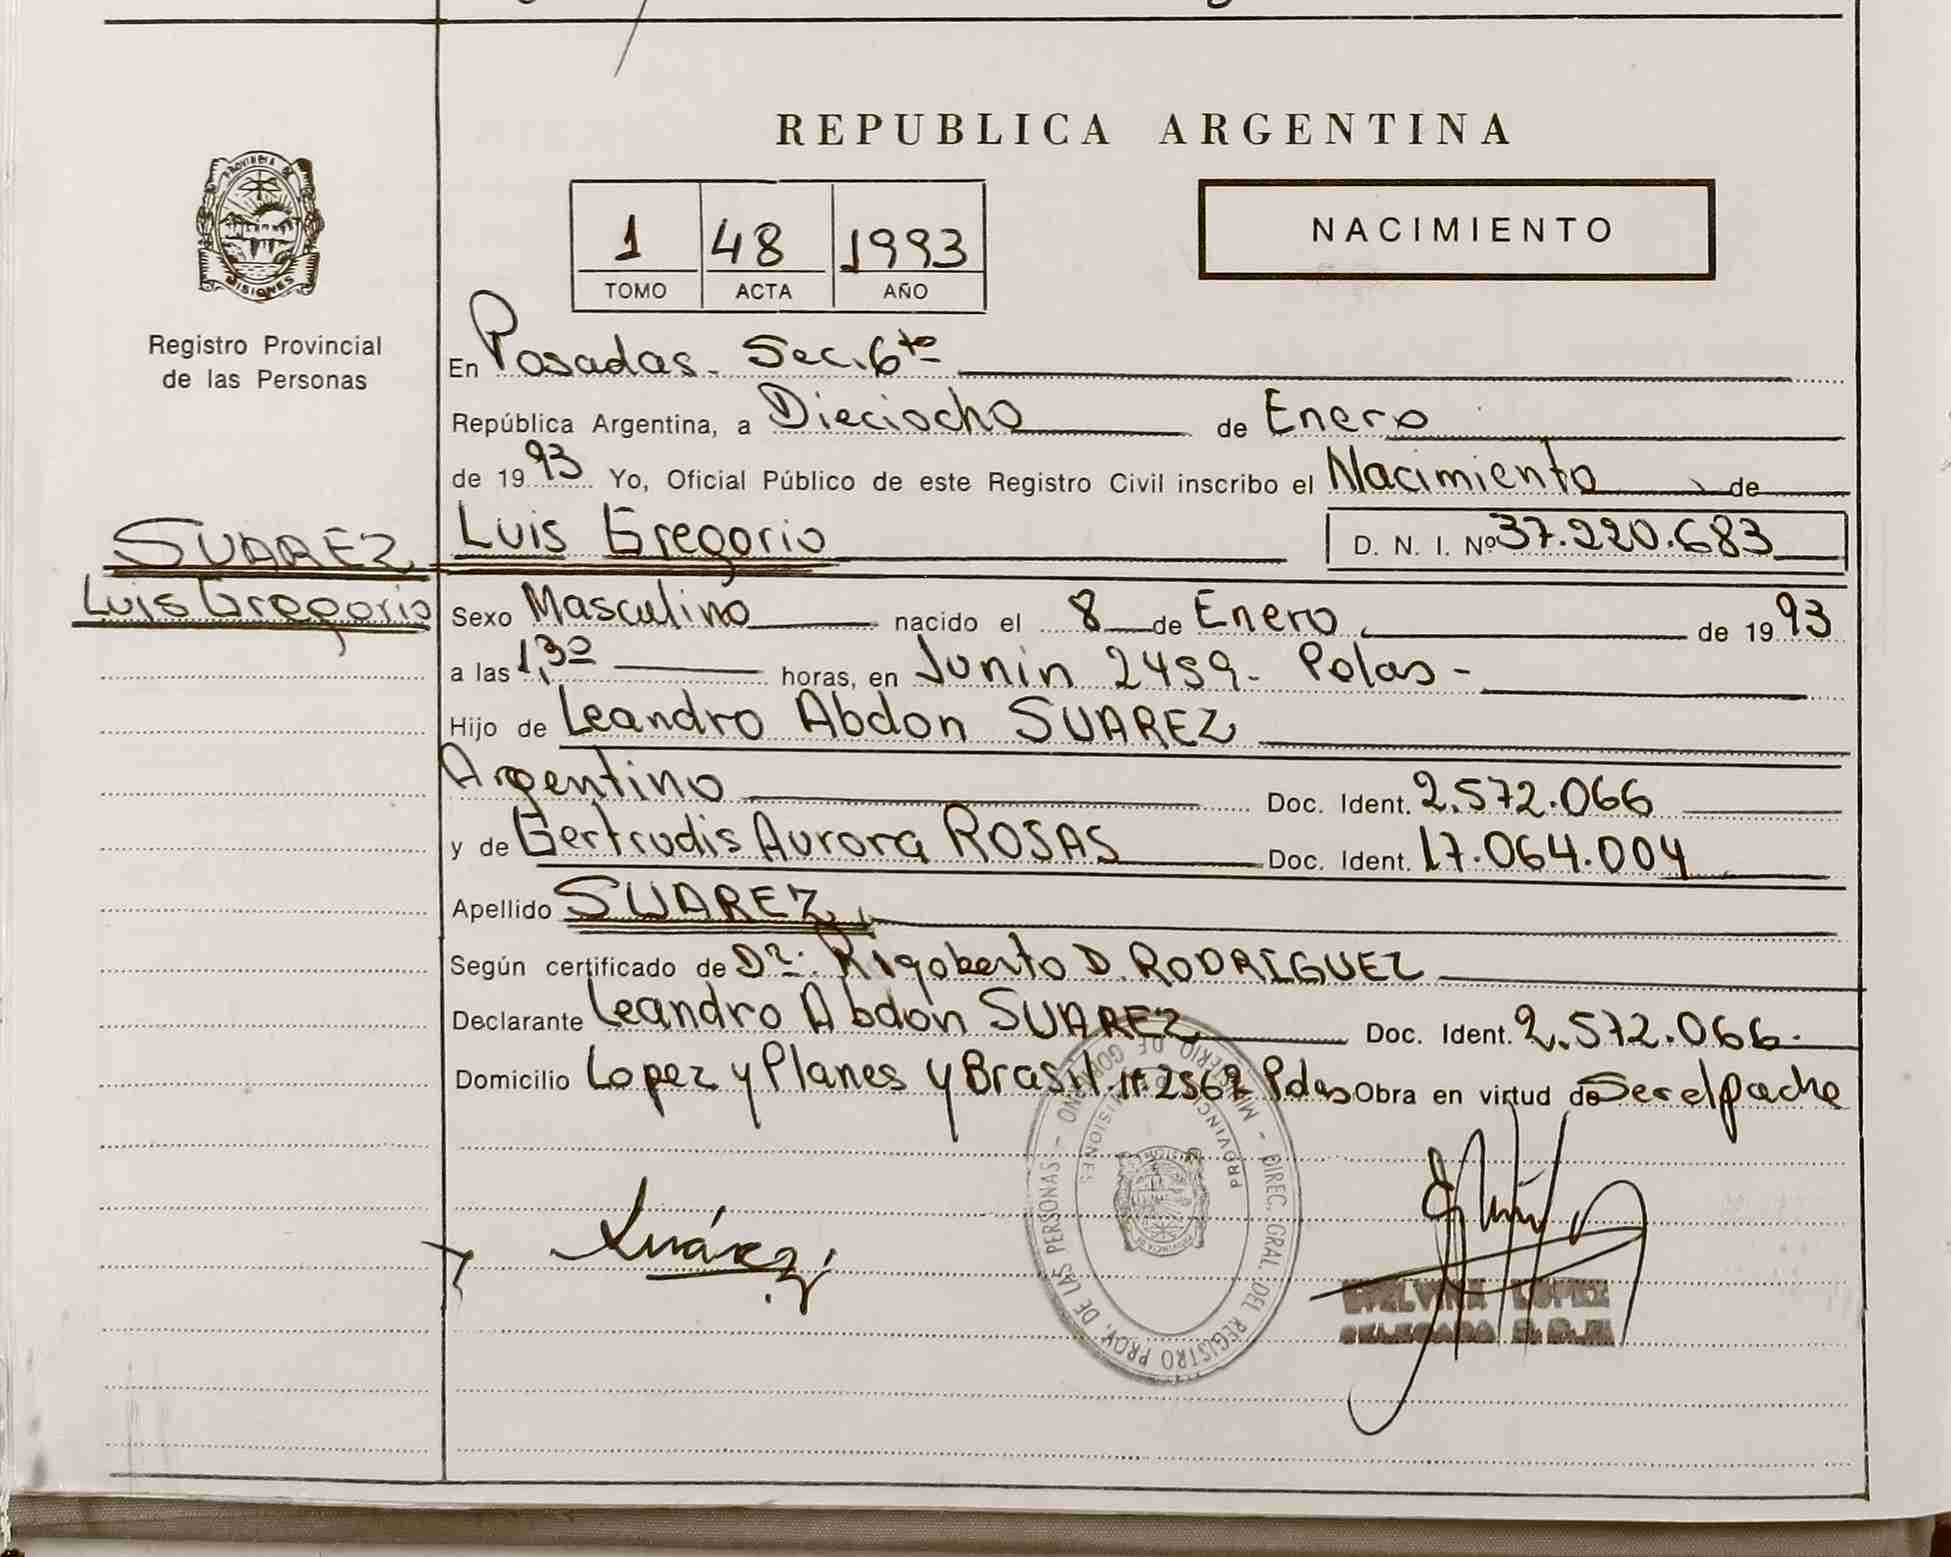 REPUBLICA ARGENTINA
PROVINCIA DE
MISIONES
Registro Provincial
de las Personas
1 48 1993
TOMO ACTA AÑO
NACIMIENTO
En Posadas. Sec. 6ta
República Argentina, a Dieciocho de Enero
de 1993 Yo, Oficial Público de este Registro Civil inscribo el Nacimiento de
SUAREZ Luis Gregorio D. N. I. Nº 37.220.683
Luis Gregorio
Sexo Masculino nacido el 8 de Enero de 1993
a las 1,30 horas, en Junin 2459. Pdas -
Hijo de Leandro Abdon SUAREZ
Argentino Doc. Ident. 2.572.066
y de Gertrudis Aurora ROSAS Doc. Ident. 17.064.004
Apellido SUAREZ
Según certificado de Dr. Rigoberto D. RODRIGUEZ
Declarante Leandro Abdon SUAREZ Doc. Ident. 2.572.066.
Domicilio Lopez y Planes y Brasil. nº 2567 Pdas Obra en virtud de Ser el padre
MINISTERIO DE GOBIERNO - DIREC. GRAL. DEL REGISTRO PROV. DE LAS PERSONAS -
PROVINCIA DE MISIONES
Suárez
LOPEZ